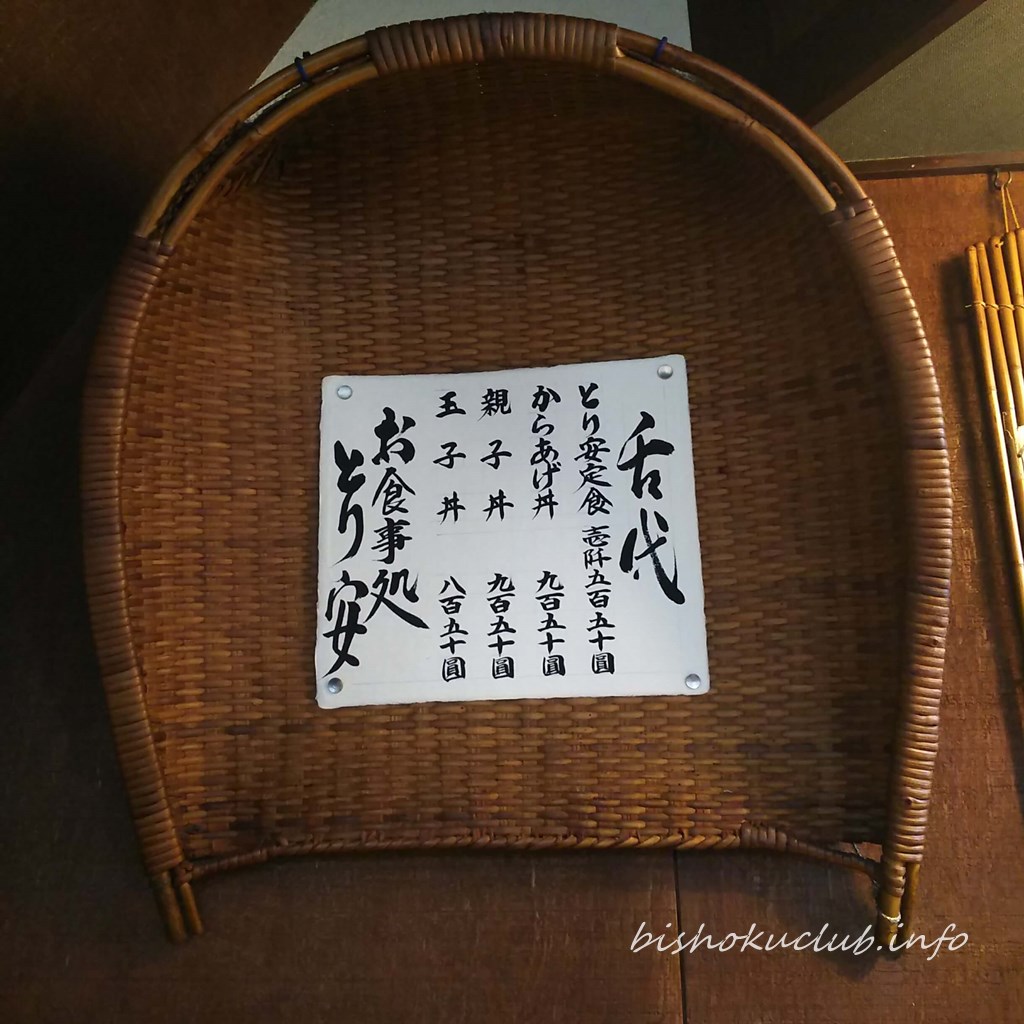 舌代
とり安定食 壱阡五百五十圓
からあげ丼 九百五十圓
親子丼 九百五十圓
玉子丼 八百五十圓
お食事処
とり安
bishokuclub.info